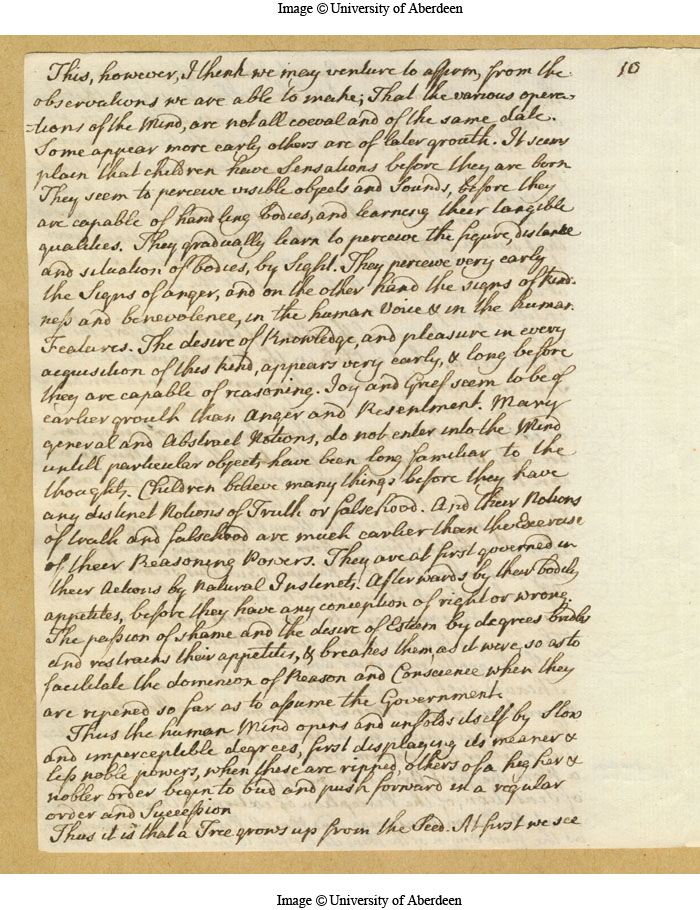 Image © University of Aberdeen
10
This, however, I think we may venture to affirm, from the
observations we are able to make; That the various opera-
-tions of the Mind, are not all coeval and of the same date.
Some appear more early others are of later grouth. It seems
plain that children have Sensations before they are born
They seem to perceive visible objects and Sounds, before they
are capable of handling bodies, and learning their tangible
qualities. They gradually learn to perceive the figure, distance
and situation of bodies, by Sight. They perceive very early
the Signs of anger, and on the other hand the signs of kind-
ness and benevolence, in the human Voice & in the human
Features. The desire of Knowledge, and pleasure in every
acquisition of this kind, appears very early, & long before
they are capable of reasoning. Joy and Grief seem to be of
earlier grouth than Anger and Resentment. Many
general and Abstract Notions, do not enter into the Mind
untill particular objects have been long familiar to the
thoughts. Children believe many things before they have
any distinct Notions of Truth or falsehood. And their Notions
of truth and falsehood are much earlier than the Exercise
of their Reasoning Powers. They are at first governed in
their Actions by Natural Instincts. Afterwards by their bodily
appetites, before they have any conception of right or wrong.
The passion of shame and the desire of Esteem by degrees bridles
and restrains their appetites, & breakes them, as it were, so as to
facilitate the dominion of Reason and Conscience when they
are ripened so far as to assume the Government.
Thus the human Mind opens and unfolds itself by Slow
and imperceptible degrees, first displaying its meaner &
less noble powers, when these are ripped, others of a higher &
nobler order begin to bud and push forward in a regular
order and Succession
Thus it is that a Tree grows up from the Seed. At first we see
Image © University of Aberdeen